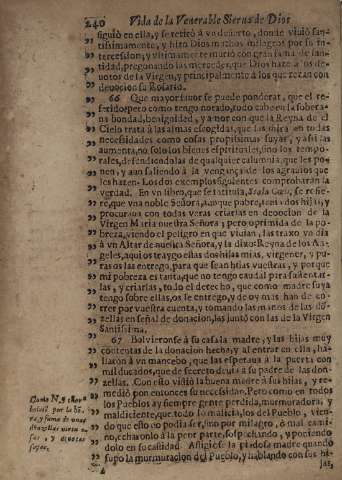 240 Vida de la Venerable Sierva de Dios
siguiò en ella, y se retirò à vn desierto, donde viuiò san-
tissimamente, y hizo Dios muchos milagros por su in-
tercession, y vltimamente muriò con gran fama de san-
tidad, pregonando las mercedes, que Dios haze à los de-
uotos de la Virgen, y principalmente à los que rezan con
deuocion su Rosario.
66 Que mayor fauor se puede ponderar, que el re-
ferido; pero como tengo notado, todo cabe en la sobera-
na bondad, benignidad, y amor con que la Reyna de el
Cielo trata à las almas escogidas, que las mira en todas
necessidades como cosas propissimas suyas, y assi las
aumenta, no solo los bienes espirituales, sino los tempo-
rales, defendiendolas de qualquier calumnia, que les po-
nen, y aun saliendo à la vengança de los agrauios que
les hazen. Los dos exemplos siguientes comprobaràn la
verdad. En vn libro, que se intitula, Scala Cœli, se refie-
re, que vna noble Señora, aunque pobre, tenia dos hijas, y
procuraua con todas veras criarlas en deuocion de la
Virgen Maria nuestra Señora; pero oprimida de la po-
breza, viendo el peligro en que viuian, las traxo vn dia
à vn Altar de nuestra Señora, y la dixo: Reyna de los An-
geles, aqui os traygo estas dos hijas mias, virgenes, y pu-
ras os las entrego, para que sean hijas vuestras, y porque
mi pobreza es tanta, que no tengo caudal para sustentar-
las, y criarlas, todo el derecho, que como madre suya
tengo sobre ellas, os le entrego, y de oy mas han de co-
rrer por vuestra cuenta, y tomando las manos de las don-
zellas en señal de donacion, las juntò con las de la Virgen
Santissima.
67 Boluieronse à su casa la madre, y las hijas muy
contentas de la donacion hecha, y al entrar en ella, ha-
llaron à vn mancebo, que las esperaua à la puerta con
mil ducados, que de secreto deuia à su padre de las don-
zellas. Con esto vistiò la buena madre à sus hijas, y re-
mediò por entonces su necessidad. Pero como en todos
los Pueblos ay siempre gente perdida, murmuradora, y
maldiciente, que todo lo malicia, los del Pueblo, vien-
do que esto no podia ser, sino por milagro, ò mal cami-
no, echaronlo à la peor parte, sospechando, y poniendo
dolo en su castidad. Afligiose la piadosa madre quando
supo la murmuracion del Pueblo, y hablando con sus hi-
jas,
Como N. Señora
por la hõ-
ra, y fama de vnas
donzellas
sas, y deuotas
suyas.